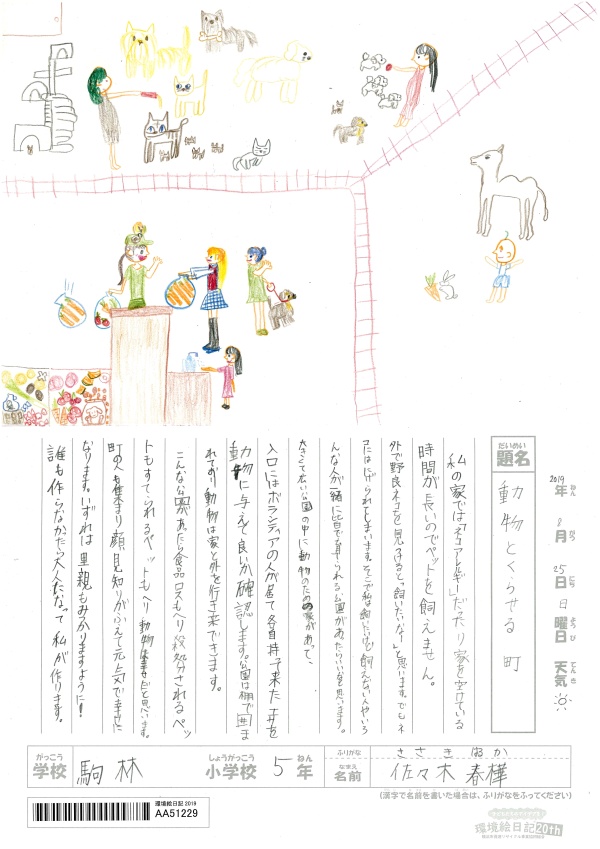 だいめい
題名
動物とくらせる町
2019年 ねん
8月 がつ
25日 にち
日曜日 ようび
天気 てんき
私の家では「ネコアレルギー」だったり家を空けている
時間が長いのでペットを飼えません。
外で野良ネコを見つけると「飼いたいな」と思います。でもネ
コにはにげられてしまいます。そこで私は飼いたいけど飼えない人やいろ
んな人が一緒に皆で育てられる公園があったらいいなと思います。
大きくて広い公園の中に動物のための家があって、
入口にはボランティアの人が居て各自持って来たエサを
動物に与えて良いか確認します。公園は柵で囲ま
れており動物は家と外を行き来できます。
こんな公園があったら食品ロスもへり殺処分されるペッ
トもすてられるペットもへり動物は幸せだと思います。
町の人も集まり顔見知りがふえて元気で幸せに
なります。いずれは里親もみつかりますように!
誰も作らなかったら大人になって私が作ります。
がっこう
学校
駒林
しょうがっこう
小学校
5年 ねん
ふりがな
ささき はるか
なまえ
名前
佐々木 春樺
(漢字で名前を書いた場合は、ふりがなをふってください)
環境絵日記 2019
AA51229
環境絵日記 20th